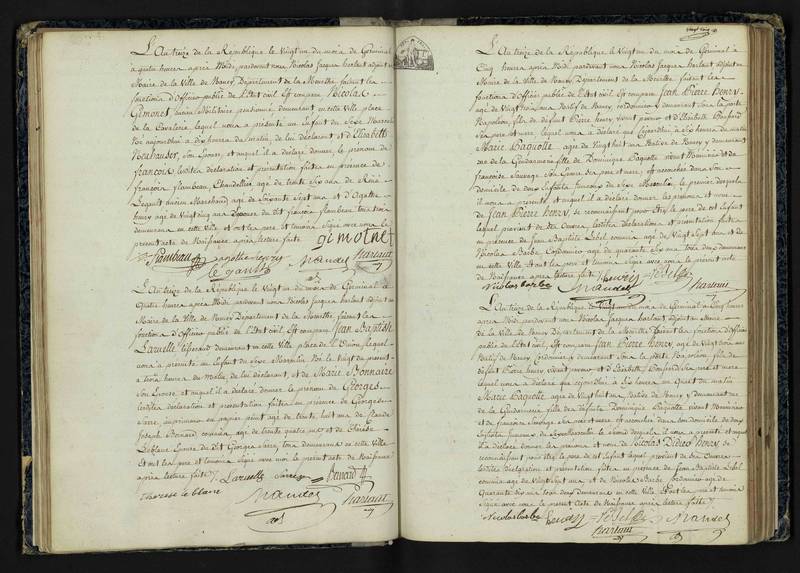 L'An treize de la République le Vingt un du mois de Germinal
à quatre heures après Midi, pardevant nous Nicolas Jacques harlaut adjoint au
Maire de la Ville de Nancy, Département de la Meurthe faisant les
fonctions d'Officier public de l'Etat civil, Est comparu Nicolas
Gimonet ancien Militaire pensionné demeurant en cette Ville place
de la Cavalerie, lequel nous a présenté un Enfant du Sexe Masculin
Né aujourd'hui à dix heures du matin, de lui déclarant et d'Elisabeth
Neuhauser, son Epouse, et auquel il a déclaré donner le prénom de
françois lesdites déclaration et présentation faites en présence de
françois flambeau Chandellier agé de trente six ans de René
Legault ancien Marchand agé de Soixante Sept ans et d'Agathe
henry agée de Vingt cinq ans Epouse du dit françois flambeau tous trois
demeurants en cette Ville et ont les père et témoins Signé avec nous le
présent acte de Naissance après lecture faite gimonet
Flambeau agathe henry
le gault Mandel harlaut
L'An treize de la République le Vingt un du mois de Germinal à
Quatre heures après Midi pardevant nous Nicolas Jacques harlaut adjoint au
Maire de la Ville de Nancy Département de la Meurthe, faisant les
fonctions d'Officier public de l'Etat civil, Est comparu Jean Baptiste
Laruelle demeurant en cette Ville place de l'Union, Lequel
nous a présenté un Enfant du Sexe Masculin Né le Vingt du présent
à trois heures du Matin de lui déclarant, et de Marie Bonnaire
Son Epouse, et auquel il a déclaré donner le prénom de Georges
lesdites déclaration et présentation faites en présence de Georges
Sarre, imprimeur en papier peint agé de trente huit ans de Claude
Joseph Bernard commis, agé de trente quatre ans et de Thérèse
Leblanc Epouse du dit Georges Sarre, tous demeurants en cette Ville
Et ont les père et témoins Signé avec nous le présent acte de Naissance
après lecture faite Laruelle Sarre Bernard
Therese le blanc Mandel harlaut
L'An treize de la République le Vingt un du mois de Germinal à
Cinq heures après Midi pardevant nous Nicolas Jacques harlaut adjoint au
Maire de la Ville de Nancy Département de la Meurthe, faisant les
fonctions d'Officier public de l'Etat civil Est comparu Jean Pierre henry
agé de Vingt trois ans Natif de Nancy, cordonnier y demeurant sous la porte
Napoléon, fils de défunt Pierre henry vivant et d'Elisabeth
Ses père et mère, lequel nous a déclaré que Cejourd'hui à Six heures du matin
Marie Paquotte, agée de Vingt huit ans Native de Nancy y demeurant
rue de la Gendarmerie fille de Dominique Paquotte vivant et de
françoise Sauvage Ses père et mère, est accouchée dans Son
domicile de deux Enfants Jumeaux du Sexe Masculin, le premier desquels
il nous a présenté, et auquel il a déclaré donner les prénoms et nom
de Jean Pierre henry, se reconnaissant pour être le père de cet Enfant
lequel provient de Ses Oeuvres, lesdites déclaration, et présentation faites
en présence de Jean Baptiste Lebel commis agé de Vingt Sept ans et de
Nicolas Barbe Cordonnier agé de quarante Six ans tous deux demeurants
en cette Ville et ont les père et témoins Signé avec nous le présent acte
de Naissance après lecture faite
Nicolas barbe henry Lebel Mandel harlaut
L'An treize de la République le Vingt un du mois de Germinal à Cinq heures
après Midi pardevant nous Nicolas Jacques harlaut adjoint au Maire
de la Ville de Nancy Département de la Meurthe faisant les fonctions d'Officier
public de l'Etat civil, Est comparu Jean Pierre henry, agé de Vingt trois ans
Natif de Nancy Cordonnier y demeurant Sous la porte Napoléon, fils de
défunt Pierre henry vivant et d'Elisabeth Ses père et mère
lequel nous a déclaré que cejourd'hui à Six heures un Quart du matin
Marie Paquotte agée de Vingt huit ans, Native de Nancy, y demeurant rue
de la Gendarmerie fille de Dominique Paquotte, vivant
et de françoise Sauvage Ses père et mère, est accouchée dans Son domicile de deux
Enfants Jumeaux du Sexe Masculin le Second desquels, il nous a présenté et auquel
il a déclaré donner les prénoms et nom de Nicolas Didier henry, Se
reconnaissant pour être le père de cet Enfant lequel provient de Ses Oeuvres
lesdites déclaration et présentation faites en présence de Jean Baptiste Lebel
commis agé de Vingt Sept ans, et de Nicolas Barbe cordonnier agé de
Quarante Six ans tous deux demeurants en cette Ville Et ont les père et témoins
Signé avec nous le présent Acte de Naissance après lecture faite
Nicolas barbe henry Lebel Mandel
harlaut